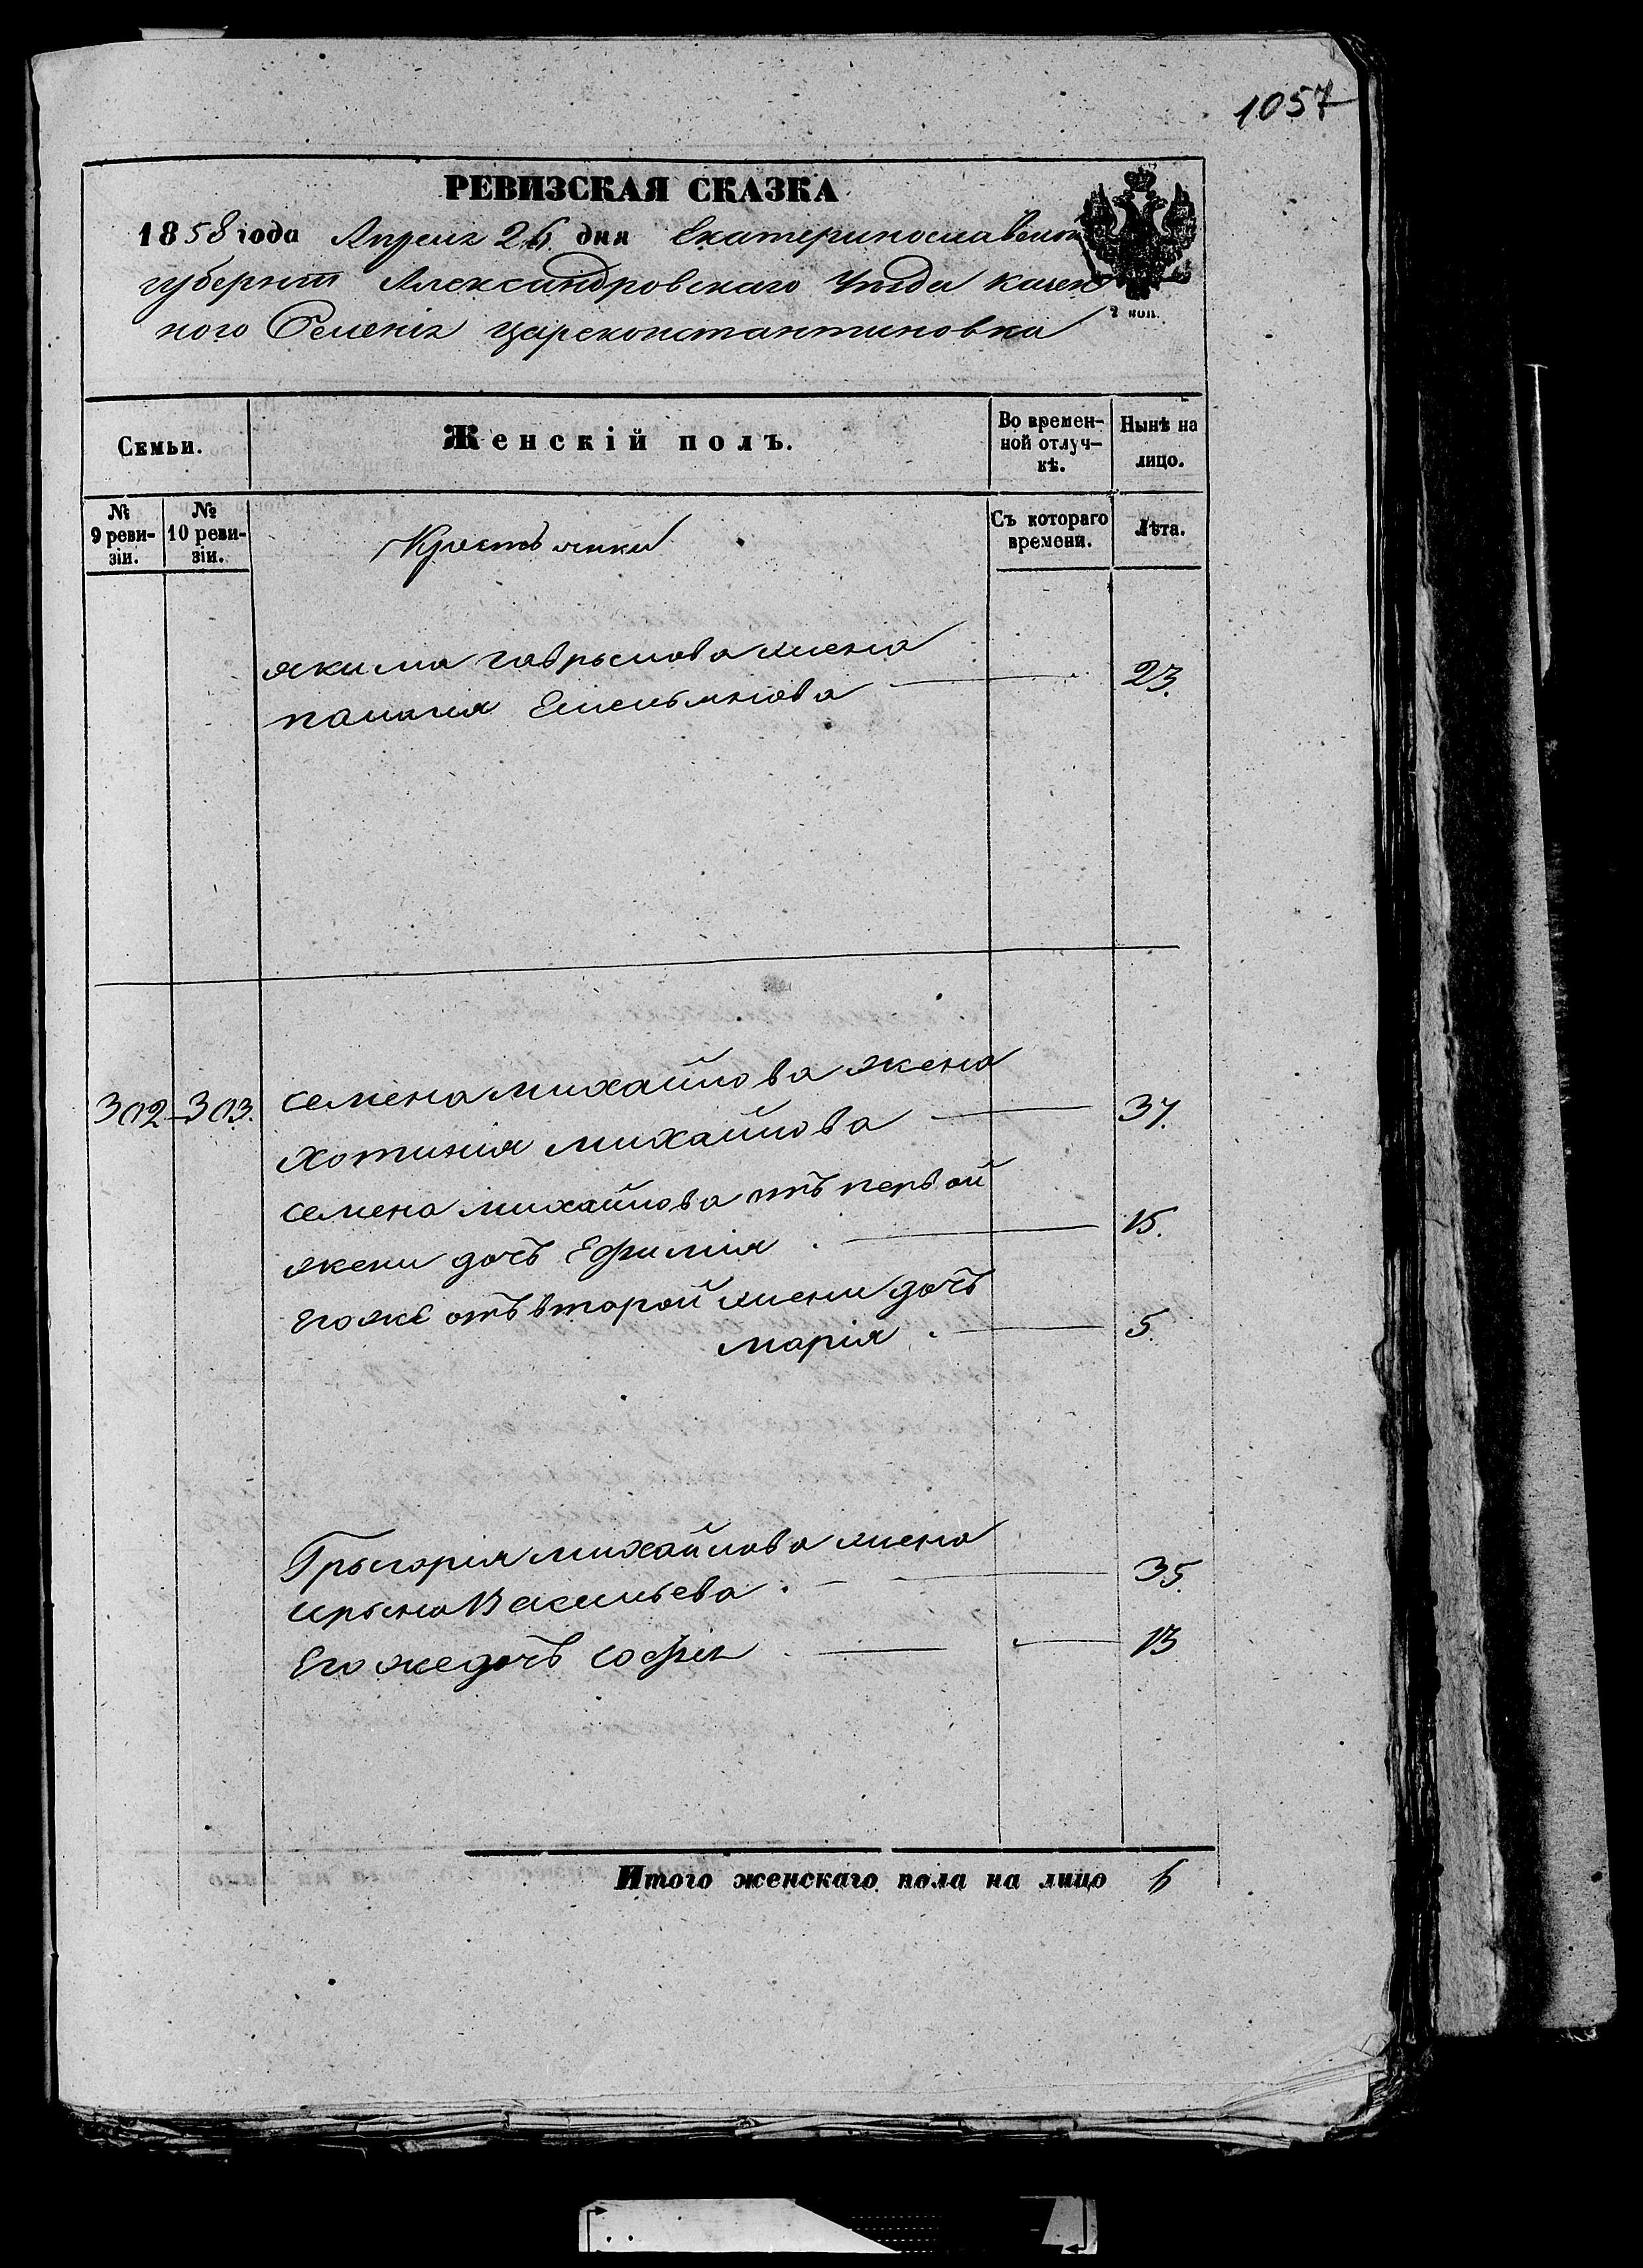 1057
РЕВИЗСКАЯ СКАЗКА
1858 года Апреля 26 дня Екатеринославской
губерніи Александровскаго Уѣзда казен
ного Селенія Цареконстантиновка
2 коп.
Семьи.
Женскій полъ.
Во времен-
ной отлуч-
кѣ.
Нынѣ на
лицо.
№
9 реви-
зіи.
№
10 реви-
зіи.
Крестьянки
Съ котораго
времени.
Лѣта.
якима гаврылова жена
Емельянова 23.
302 303. семена михайлова жена
хотинія михайлова 37.
семена михайлова отъ первой
жени дочь Ефимія 15.
Егоже отъ второй жени дочь
марія 5.
Грыгорія михайлова жена
ирына Васильева 35.
Егоже дочь софія 13
Итого женскаго пола на лицо 6